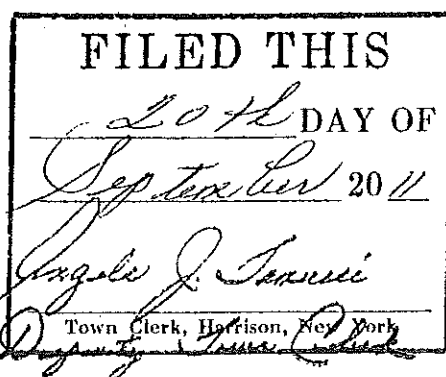 FILED THIS
20th DAY OF
September 2011
Angela J.
Town Clerk, Harrison, New York
Deputy Town Clerk